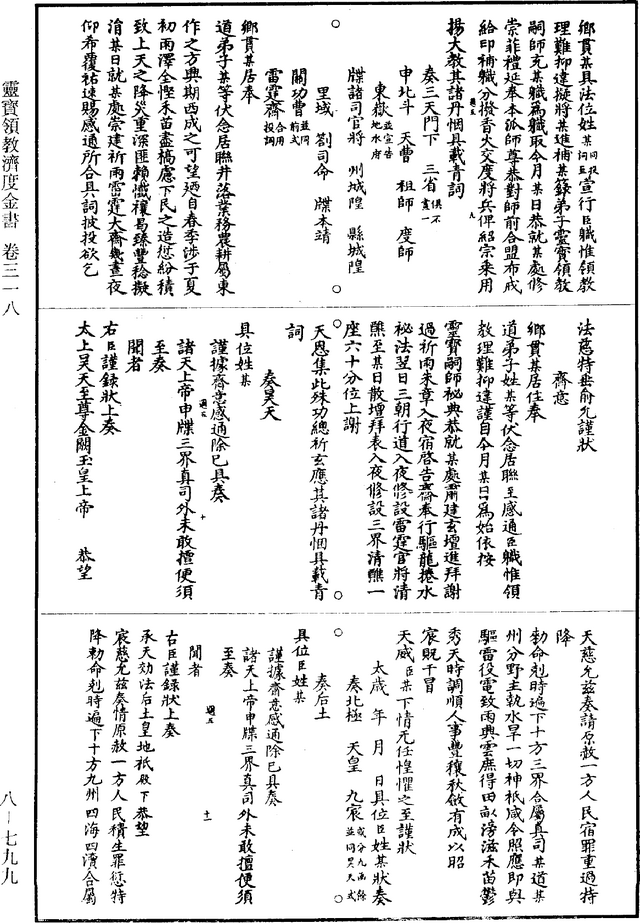 鄉貫某具法位姓某同投詞至宣行臣職惟領教
理難抑違擬將某進補某籙弟子靈寶領教
嗣師充某職為職取今月某日恭就某處修
崇菲禮延奉本派師尊恭對師前合盟布戒
給印補職分撥香火交度將兵俾紹宗乘用
揚大教其諸丹悃具載青詞
奏三天門下 三省俱不貢一
申北斗 天曹 祖師 度師
東嶽並宣告地水府
牒諸司官將 州城隍 縣城隍
里域 劉司命 牒本靖
關功曹並同前式
雷霆齋合用投詞
鄉貫某居奉
道弟子某等伏念居聯井落業務農耕屬東
作之方興期西成之可望廼自春季涉于夏
初雨澤全慳禾苗盡槁慮下民之造愆紛積
致上天之降災重深匪賴懺禳曷臻豐稔擬
涓某日就某處崇建祈雨雷霆大齋幾晝夜
仰希覆祐速賜感通所合具詞披投欲乞
法慈特垂俞允謹狀
齋意
鄉貫某居住奉
道弟子姓某等伏念居聯至感通臣職惟領
教理難抑違謹自今月某日為始依按
靈寶嗣師秘典恭就某處肅建玄壇進拜謝
過祈雨朱章入夜宿啓告齋奉行驅龍捲水
秘法翌日三朝行道入夜修設雷霆官將清
醮至某日散壇拜表入夜修設三界清醮一
座六十分位上謝
天恩集此殊功總祈玄應其諸丹悃具載青
詞
奏昊天
具位姓某
謹據齋意感通除已具奏
諸天上帝申牒三界真司外未敢擅便須
至奏
聞者
右臣謹錄狀上奏
太上昊天至尊金闕玉皇上帝 恭望
天慈允兹奏請原赦一方人民宿罪重過特
降
勑命剋時遍下十方三界合屬真司某道某
州分野主執水旱一切神祇咸令照應即與
驅雷役電致雨興雲庶得田畝滂滋禾苗鬱
秀天時調順人事豐穰秋斂有成以昭
宸貺干冒
天威臣某下情无任惶懼之至謹狀
太歲 年 月 日具位臣姓某狀奏
奏北極 天皇 九宸或分九函餘並同昊天式
奏后土
具位臣姓某
謹據齋意感通除已具奏
諸天上帝申牒三界真司外未敢擅便須
至奏
聞者
右臣謹錄狀上奏
承天効法后土皇地祇殿下恭望
宸慈允兹奏情原赦一方人民積生罪愆特
降勑命剋時遍下十方九州四海四瀆合屬
靈寶領教濟度金書 卷三一八
八－七九九